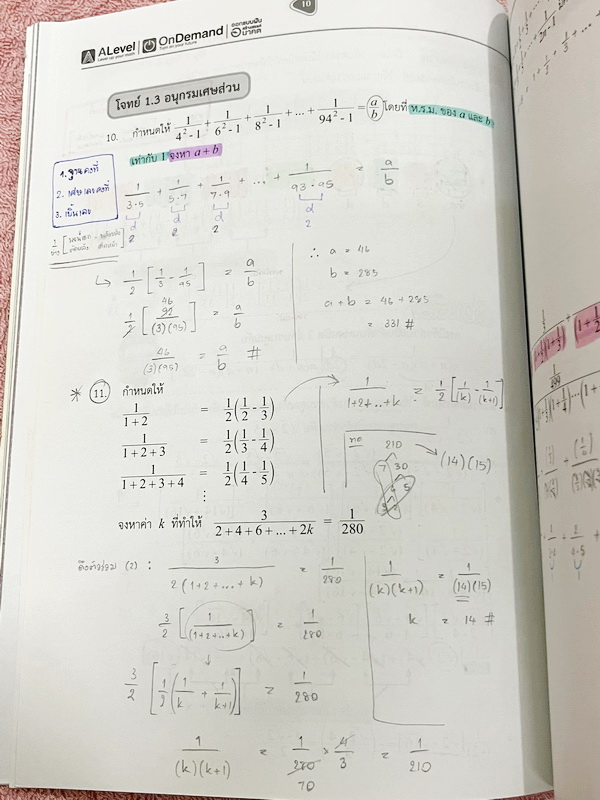 10
ALevel
Level up your math
OnDemand
Turn on your future
ออกแบบฝัน
สร้างสรรค์
อนาคต
โจทย์ 1.3 อนุกรมเศษส่วน
10. กำหนดให้ 1/(4²-1) + 1/(6²-1) + 1/(8²-1) + ... + 1/(94²-1) = a/b โดยที่ ห.ร.ม. ของ a และ b
เท่ากับ 1 จงหา a + b
1. ฐานคงที่
2. เศษเลขคงที่
1/(3·5) + 1/(5·7) + 1/(7·9) + ... + 1/(93·95) = a/b
d d d d
2 2 2 2
1/2 [1/3 - 1/95] = a/b
46
1/2 [92/(3)(95)] = a/b
46/(3)(95) = a/b #
∴ a = 46
b = 285
a+b = 46 + 285
= 331 #
* 11. กำหนดให้
1/(1+2) = 1/2(1/2 - 1/3)
1/(1+2+3) = 1/2(1/3 - 1/4)
1/(1+2+3+4) = 1/2(1/4 - 1/5)
⋮
1/(1+2+...+k) = 1/2 [1/(k) - 1/(k+1)]
ทด
210
7 30
(14)(15)
จงหาค่า k ที่ทำให้ 3/(2+4+6+...+2k) = 1/280
ดึงตัวร่วม (2) : 3/(2(1+2+...+k)) = 1/280
3/2 [1/(1+2+...+k)] = 1/280
3/2 [1/2 (1/k + 1/(k+1))] = 1/280
1/((k)(k+1)) = 1/280 × 4/3 = 1/210
70
1/((k)(k+1)) = 1/((14)(15))
k = 14 #